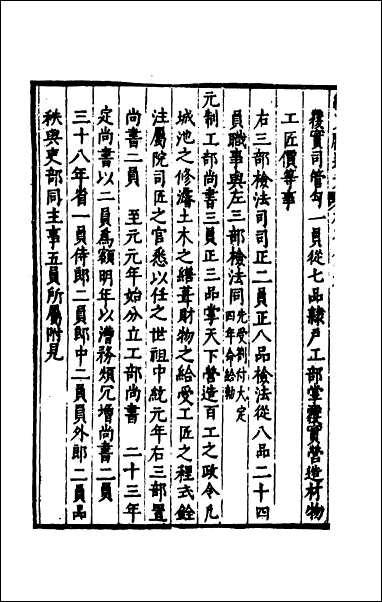 覆實司管勾一員從七品隸戶工部掌覆實營造材物
工匠價等事
右三部檢法司司正二員正八品檢法從八品二十四
員職事與左三部檢法同先受劄付大定四年命給勅
元制工部尚書三員正三品掌天下營造百工之政令凡
城池之修濬土木之繕葺財物之給受工匠之程式銓
注屬院司匠之官悉以任之世祖中統元年右三部置
尚書二員 至元元年始分立工部尚書 二十三年
定尚書以二員為額明年以漕務煩冗增尚書二員
三十八年省一員侍郎二員郎中二員員外郎二員品
秩與吏部同主事五員所屬附見